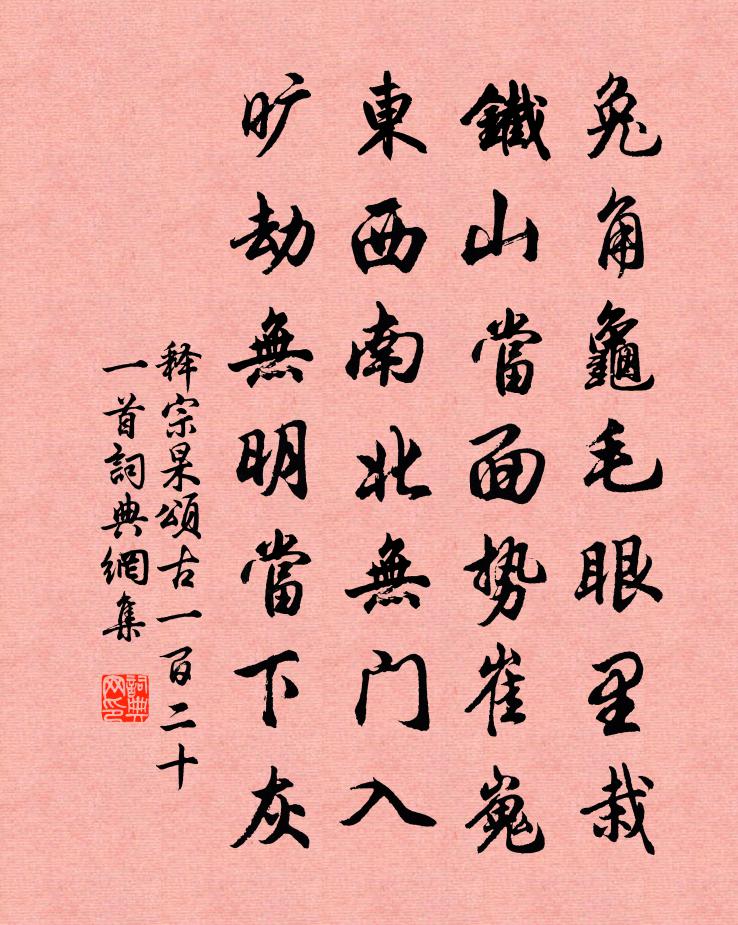 兔角龜毛眼里栽
鐵山當面势崔嵬
東西南北無门入
旷劫無明當下灰
释宗杲頌古一百二十
一首詞典網集
詞典网印